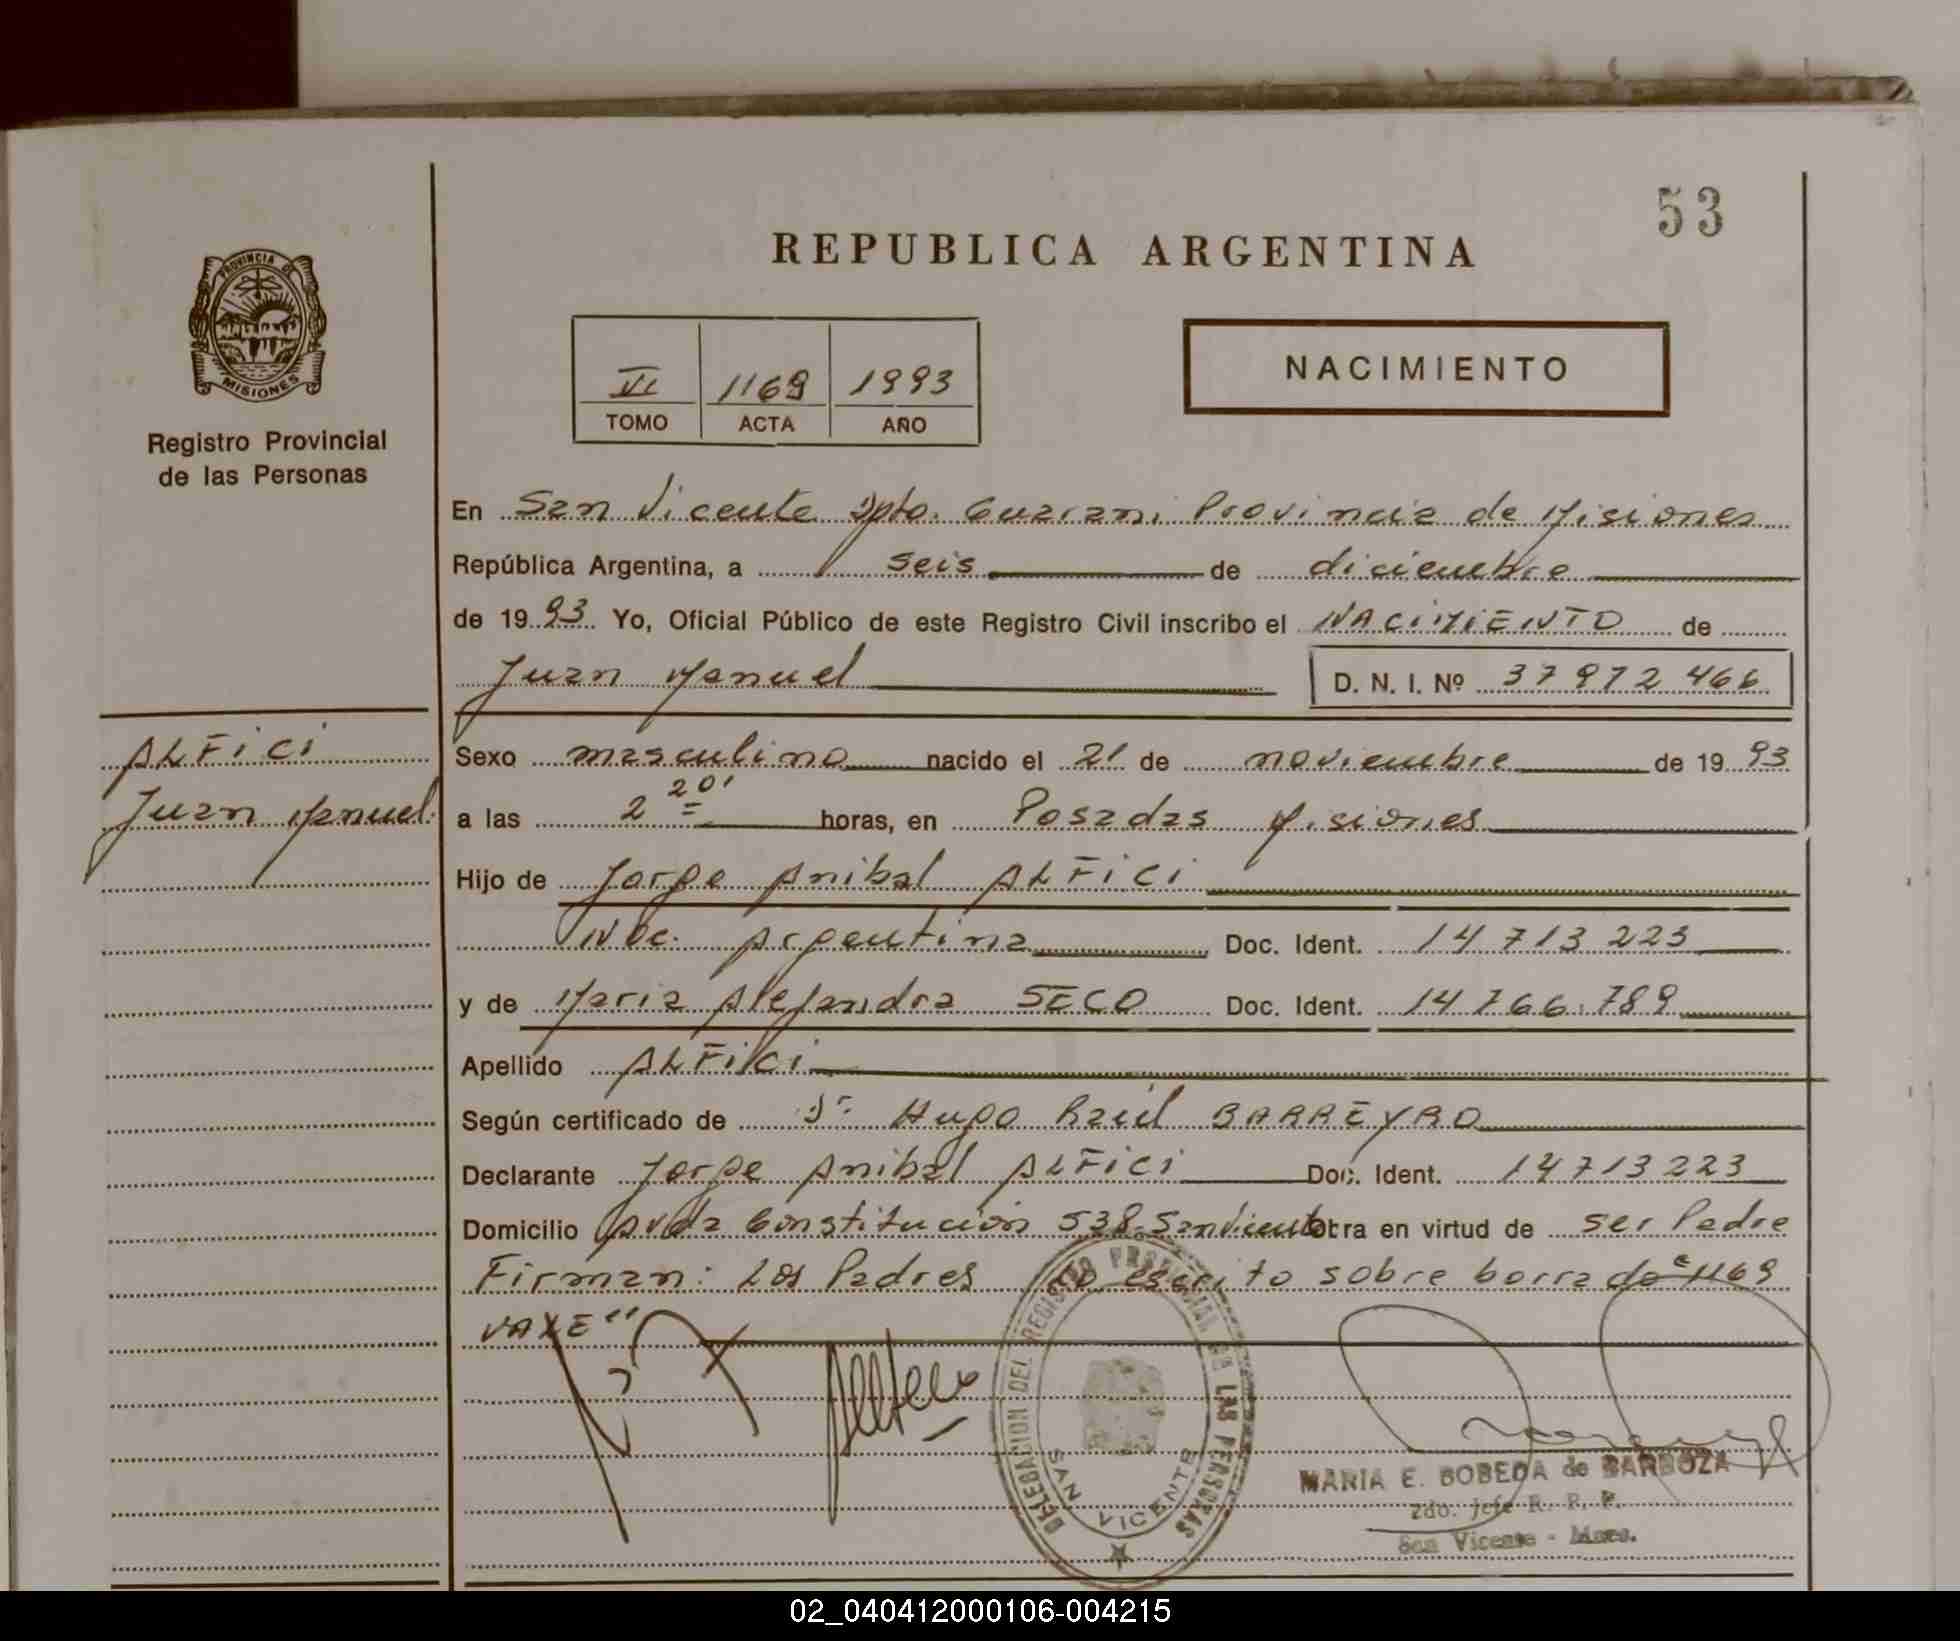 53
REPUBLICA ARGENTINA
PROVINCIA DE
MISIONES
Registro Provincial
de las Personas
VI 1169 1993
TOMO ACTA AÑO
NACIMIENTO
En San Vicente Dpto. Guarani Provincia de Misiones
República Argentina, a seis de diciembre
de 1993 Yo, Oficial Público de este Registro Civil inscribo el NACIMIENTO de
Juan Manuel D. N. I. Nº 37 972 466
ALFICI
Juan Manuel
Sexo masculino nacido el 21 de noviembre de 1993
a las 2 20' horas, en Posadas Misiones
Hijo de Jorge Anibal ALFICI
Nac. Argentina Doc. Ident. 14 713 223
y de Maria Alejandra SECO Doc. Ident. 14 766.789
Apellido ALFICI
Según certificado de Dr. Hugo Raúl BARREYRO
Declarante Jorge Anibal ALFICI Doc. Ident. 14 713 223
Domicilio Avda Constitución 538-San Vicente Obra en virtud de ser Padre
Firman: Los Padres escrito sobre borrado "1169
VALE"
DELEGACION DEL REGISTRO PROVINCIAL DE LAS PERSONAS
SAN VICENTE
MARIA E. BOBEDA de BARBOZA
2do. Jefe R. P. P.
San Vicente - Mnes.
02_040412000106-004215